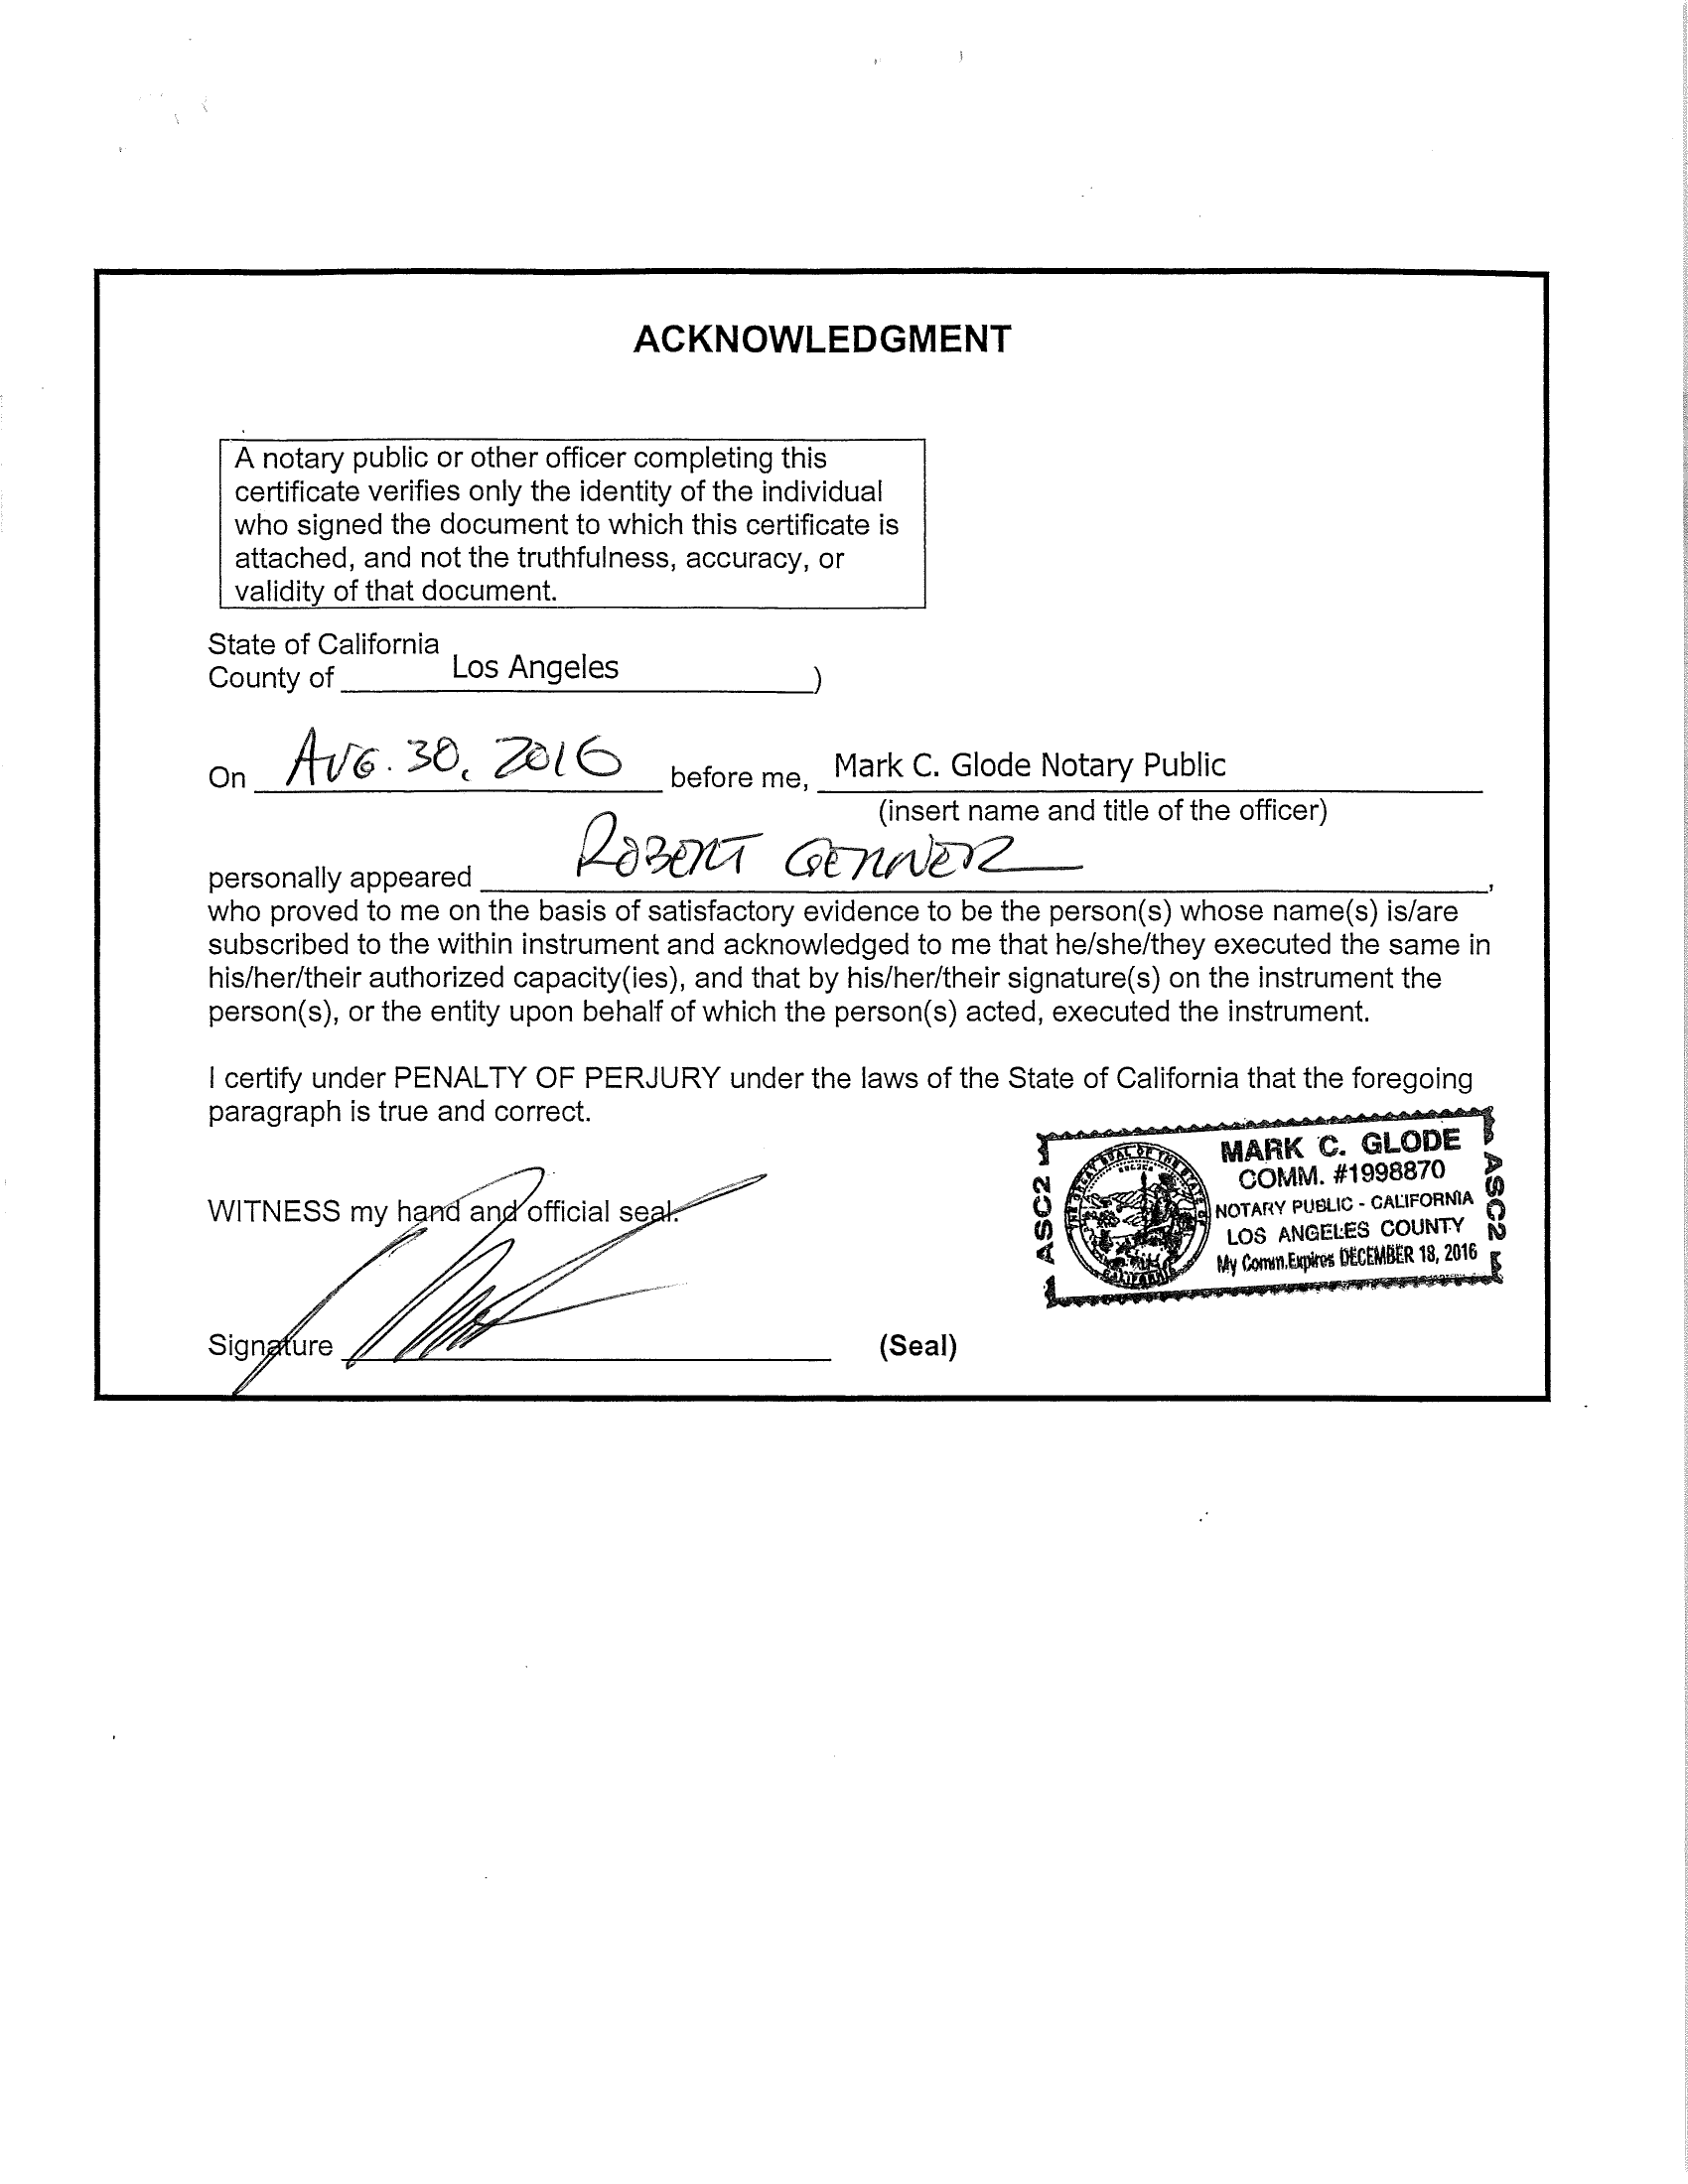 ACKNOWLEDGMENT
A notary public or other officer completing this
certificate verifies only the identity of the individual
who signed the document to which this certificate is
attached, and not the truthfulness, accuracy, or
validity of that document.
State of California
County of Los Angeles )
On AUG. 30, 2016 before me, Mark C. Glode Notary Public
(insert name and title of the officer)
personally appeared ROBERT GENNER ,
who proved to me on the basis of satisfactory evidence to be the person(s) whose name(s) is/are
subscribed to the within instrument and acknowledged to me that he/she/they executed the same in
his/her/their authorized capacity(ies), and that by his/her/their signature(s) on the instrument the
person(s), or the entity upon behalf of which the person(s) acted, executed the instrument.
I certify under PENALTY OF PERJURY under the laws of the State of California that the foregoing
paragraph is true and correct.
WITNESS my hand and official seal.
Signature (Seal)
ASC2
THE GREAT SEAL OF THE STATE OF CALIFORNIA
MARK C. GLODE
COMM. #1998870
NOTARY PUBLIC - CALIFORNIA
LOS ANGELES COUNTY
My Comm.Expires DECEMBER 18, 2016
ASC2